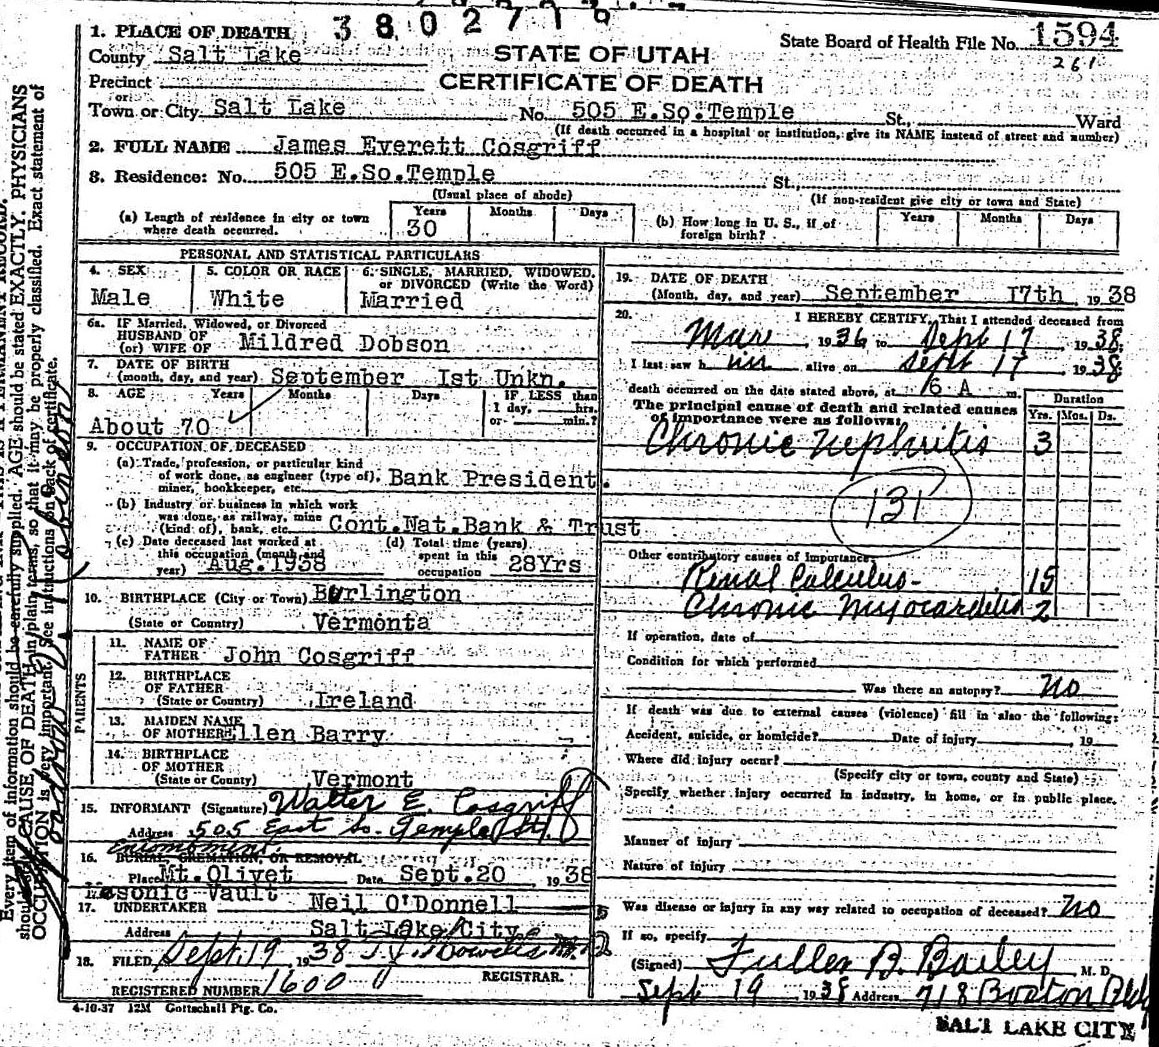 3802716
1. PLACE OF DEATH
State Board of Health File No. 1594
261
County Salt Lake
STATE OF UTAH
CERTIFICATE OF DEATH
Precinct
or
Town or City Salt Lake No. 505 E.So.Temple St., Ward
(If death occurred in a hospital or institution, give its NAME instead of street and number)
2. FULL NAME James Everett Cosgriff
3. Residence: No. 505 E.So.Temple St.,
(Usual place of abode) (If non-resident give city or town and State)
(a) Length of residence in city or town where death occurred. Years 30 Months Days
(b) How long in U. S., if of foreign birth? Years Months Days
PERSONAL AND STATISTICAL PARTICULARS
4. SEX Male
5. COLOR OR RACE White
6. SINGLE, MARRIED, WIDOWED, or DIVORCED (Write the Word) Married
6a. IF Married, Widowed, or Divorced
HUSBAND OF
(or) WIFE OF Mildred Dobson
7. DATE OF BIRTH
(month, day, and year) September Ist Unkn.
8. AGE Years Months Days IF LESS than 1 day, hrs. or min.?
About 70
9. OCCUPATION OF DECEASED
(a) Trade, profession, or particular kind
of work done, as engineer (type of), Bank President.
miner, bookkeeper, etc.
(b) Industry or business in which work
was done, as railway, mine
(kind of), bank, etc. Cont.Nat.Bank & Trust
(c) Date deceased last worked at
this occupation (month and
year) Aug.1938
(d) Total time (years)
spent in this
occupation 28Yrs
10. BIRTHPLACE (City or Town) Burlington
(State or Country) Vermonta
PARENTS
11. NAME OF
FATHER John Cosgriff
12. BIRTHPLACE
OF FATHER
(State or Country) Ireland
13. MAIDEN NAME
OF MOTHER Ellen Barry
14. BIRTHPLACE
OF MOTHER
(State or County) Vermont
15. INFORMANT (Signature) Walter E. Cosgriff
Address 505 East So. Temple St.
entombment
16. BURIAL, CREMATION, OR REMOVAL
Place Mt.Olivet Date Sept.20 1938
Masonic Vault
17. UNDERTAKER Neil O'Donnell
Address Salt Lake City
18. FILED Sept 19 1938
REGISTRAR.
REGISTERED NUMBER 1600
4-10-37 12M Gottschall Ptg. Co.
19. DATE OF DEATH
(Month, day, and year) September 17th 1938
20. I HEREBY CERTIFY, That I attended deceased from
Mar 1936 to Sept 17 1938;
I last saw him alive on Sept 17 1938
death occurred on the date stated above, at 6 A m.
The principal cause of death and related causes
of importance were as follows:
Duration
Yrs. Mos. Ds.
Chronic Nephritis 3
131
Other contributory causes of importance
Renal Calculus- 15
Chronic Myocarditis 2
If operation, date of
Condition for which performed
Was there an autopsy? No
If death was due to external causes (violence) fill in also the following:
Accident, suicide, or homicide? Date of injury , 19
Where did injury occur?
(Specify city or town, county and State)
Specify whether injury occurred in industry, in home, or in public place.
Manner of injury
Nature of injury
Was disease or injury in any way related to occupation of deceased? No
If so, specify
(Signed) Fuller B. Bailey M. D.
Sept 19 1938 Address 718 Boston Bldg
SALT LAKE CITY
Every item of information should be carefully supplied. AGE should be stated EXACTLY. PHYSICIANS
should CAUSE OF DEATH in plain terms, so that it may be properly classified. Exact statement of
OCCUPATION is very important. See instructions on back of certificate.